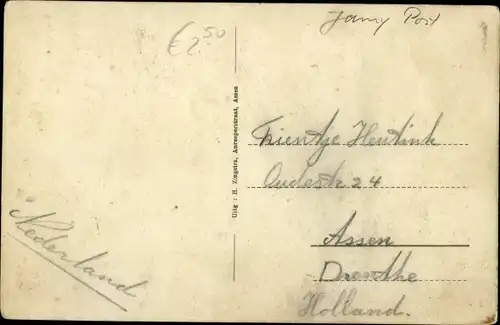 Jamy Post
€2.50
Uitg : H. Zingstra, Anreeperstraat, Assen
Trientje Heutink
Oudestr 24
Assen
Drenthe
Holland.
Nederland